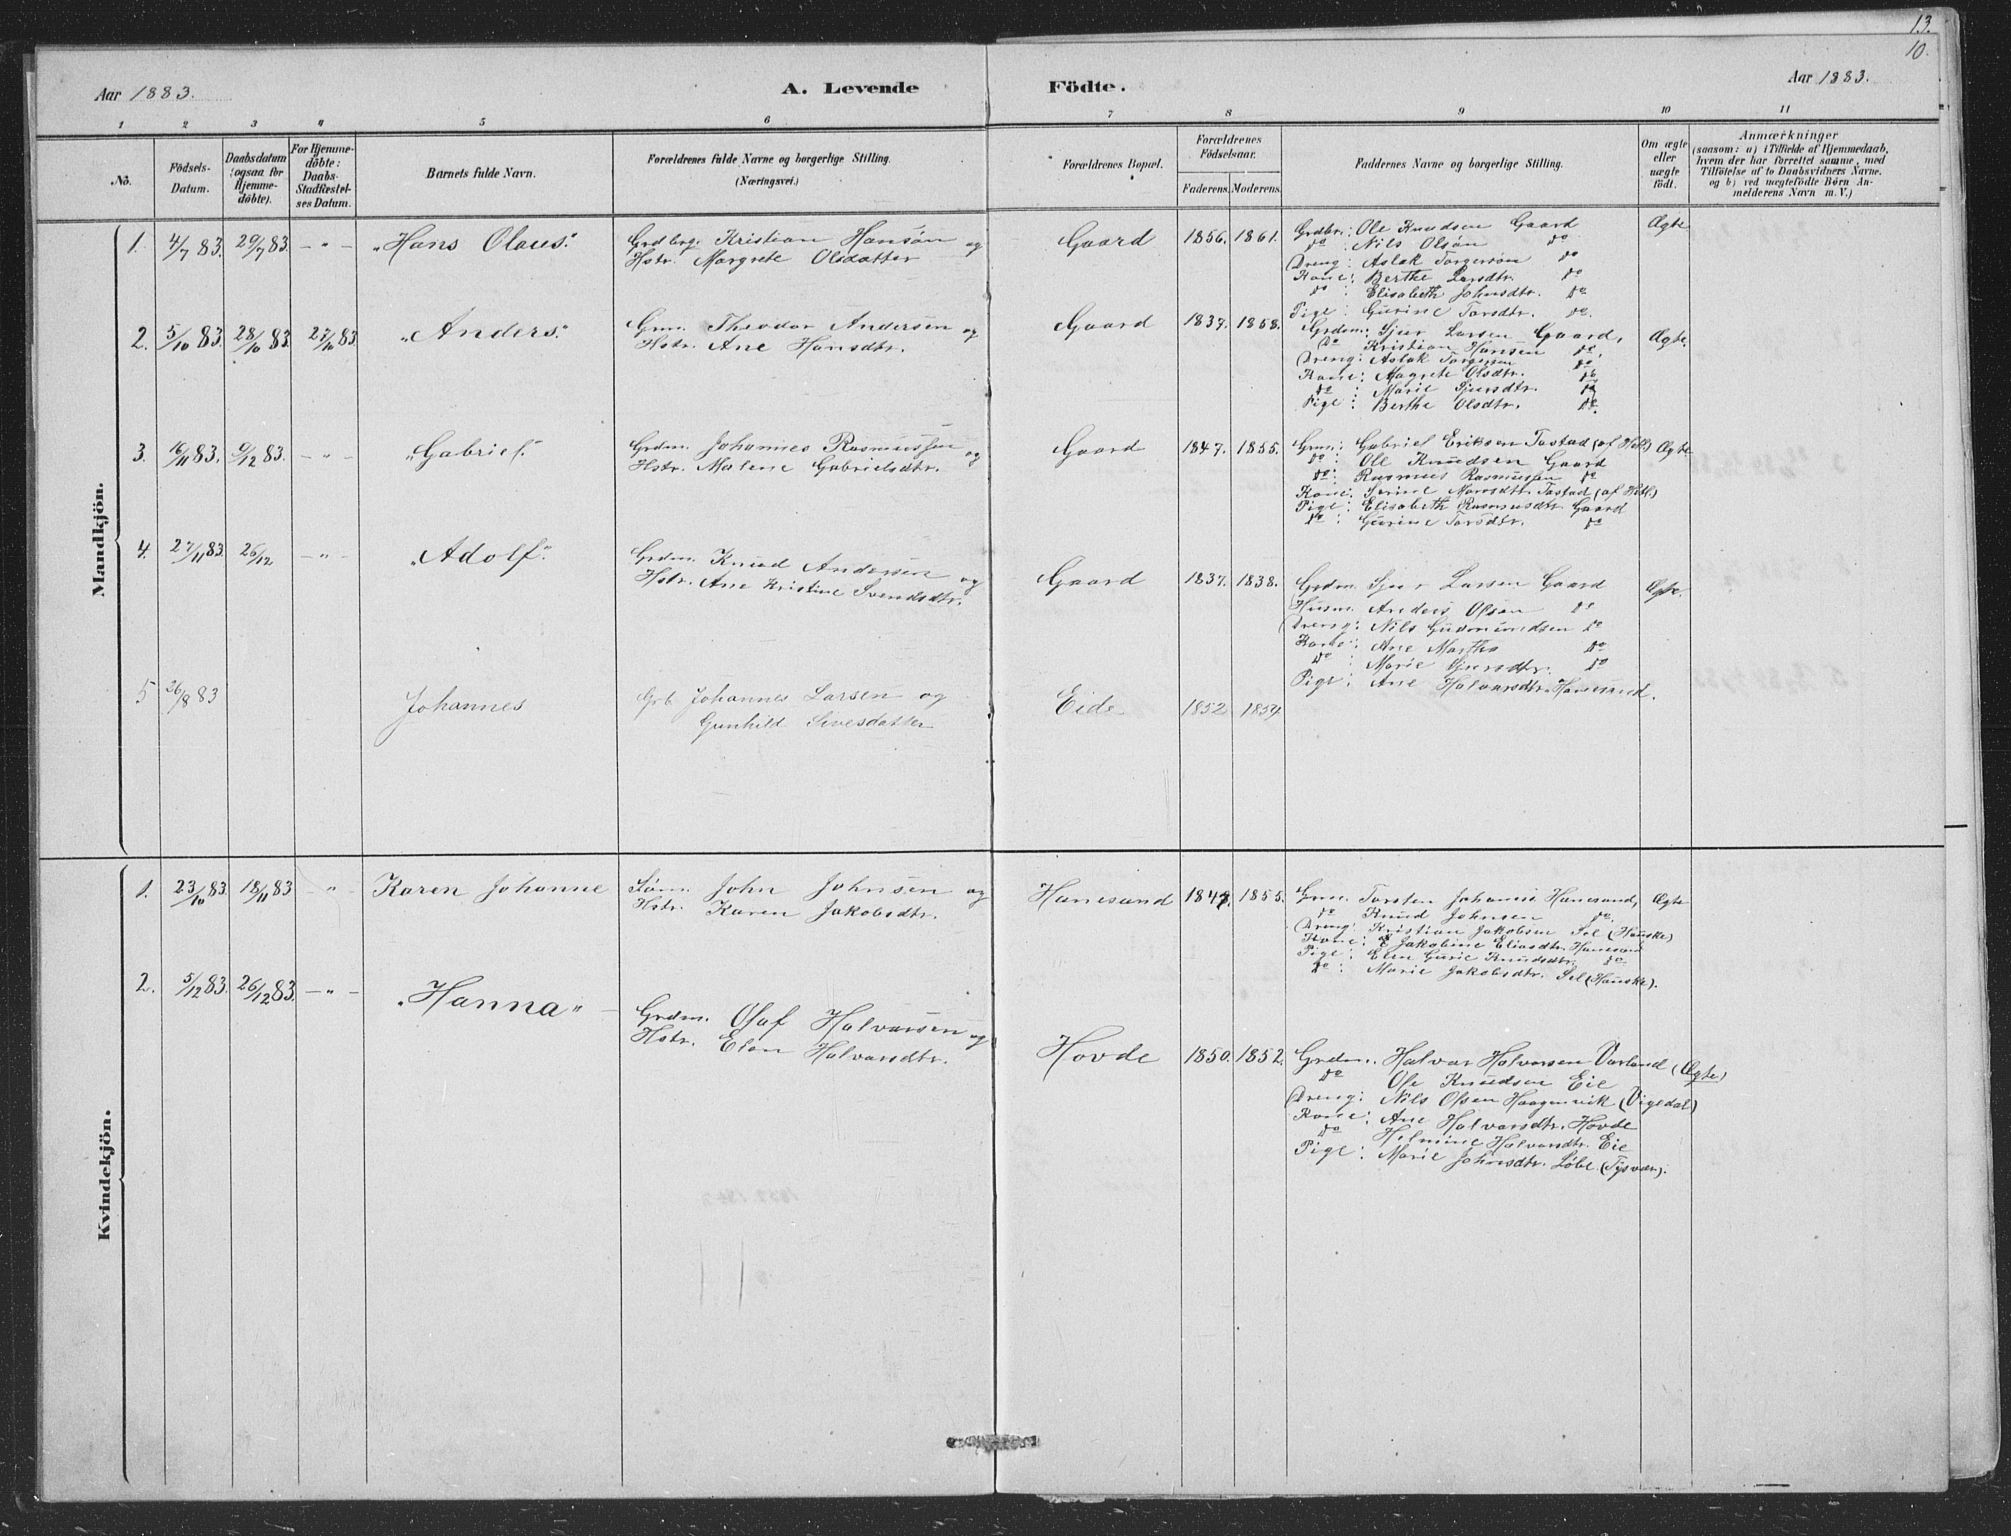 13.
10.
Aar 1883.
A. Levende Födte.
Aar 1883.
1 2 3 4 5 6 7 8 9 10 11
No.
Födsels-Datum.
Daabsdatum (ogsaa for Hjemme-döbte).
For Hjemme-döbte: Daabs-Stadfæstel-ses Datum.
Barnets fulde Navn.
Forældrenes fulde Navne og borgerlige Stilling.
(Næringsvei.)
Forældrenes Bopæl.
Forældrenes Födselsaar.
Faderens. Moderens.
Faddernes Navne og borgerlige Stilling.
Om ægte eller uægte födt.
Anmærkninger
(saasom: a) i Tilfælde af Hjemmedaab,
hvem der har forrettet samme, med
Tilföielse af to Daabsvidners Navne.
og b) ved uægtefödte Börn An-
melderens Navn m. V.)
Mandkjön.
1. 4/7 83. 29/7 83. -"- "Hans Olaus".
Grdbrg. Kristian Hansøn og
Hstr. Margrete Olsdatter
Gaard 1856. 1861.
Grdbr: Ole Knudsen Gaard
do : Nils Olsøn do
Dreng: Aslak Torgersøn do
Kone: Berthe Larsdtr. do
do : Elisabeth Johnsdtr. do
Pige : Gurine Torsdtr. do.
Ægte
2. 5/10 83. 28/10 83. 27/10 83. "Anders".
Grm. Theodor Andersen og
Hstr. Ane Hansdtr.
Gaard 1837. 1858.
Grdm: Sjur Larsen Gaard,
do Kristian Hansen do.
Dreng: Aslak Torgersen do
Kone: Magrete Olsdtr. do
do : Marie Sjursdtr. do
Pige : Berthe Olsdtr. do.
Ægte.
3. 16/11 83. 9/12 83. -"- "Gabriel".
Grdm. Johannes Rasmussen og
Hstr. Malene Gabrielsdtr.
Gaard 1847. 1855.
Grm: Gabriel Eriksen Tastad (af Hetl.)
do : Ole Knudsen Gaard
do : Rasmus Rasmussen do
Kone: Serine Monsdtr. Tastad (af Hetl.)
Pige : Elisabeth Rasmusdtr. Gaard
do : Gurine Torsdtr. do
Ægte
4. 27/11 83. 26/12 -"- "Adolf".
Grdm. Knud Andersen og
Hstr. Ane Kristine Svendsdtr.
Gaard 1837. 1838.
Grdm. Sjur Larsen Gaard
Husm. Anders Olson do
Dreng: Nils Gudmundsen do
Kone: Ane Martha do
do : Marie Sjursdtr. do
Pige : Ane Halvarsdtr. Hanesund.
Ægte.
5 26/8 83 Johannes
Grb. Johannes Larsen og
Gunhild Sivesdatter
Eide 1852 1859.
Kvindekjön.
1. 23/10 83. 18/11 83 -"- Karen Johanne
John Johnsen og
Hstr. Karen Jakobsdtr.
Hanesund 1847. 1855.
Grm. Torsten Johansen Hanesund,
do Knud Johnsen do.
Dreng: Kristian Jakobsen Sel (Hauske)
Kone: Jakobine Eliasdtr. Hanesund
Pige : Elen Gurie Knudsdtr. do
do : Marie Jakobsdtr. Sel (Hauske).
Ægte
2. 5/12 83. 26/12 83. -"- "Hanna"
Grdm. Olaf Halvarsen og
Hstr. Elen Halvarsdtr.
Hovde 1850. 1852.
Grdm. Halvar Halvarsen Varland
do Ole Knudsen Eie
Dreng: Nils Olsen Haagenvik (Vigedal)
Kone: Ane Halvarsdtr. Hovde
do Helmine Halvarsdtr. Eie
Pige : Marie Johnsdtr. Løbe (Tysvær).
(Ægte)